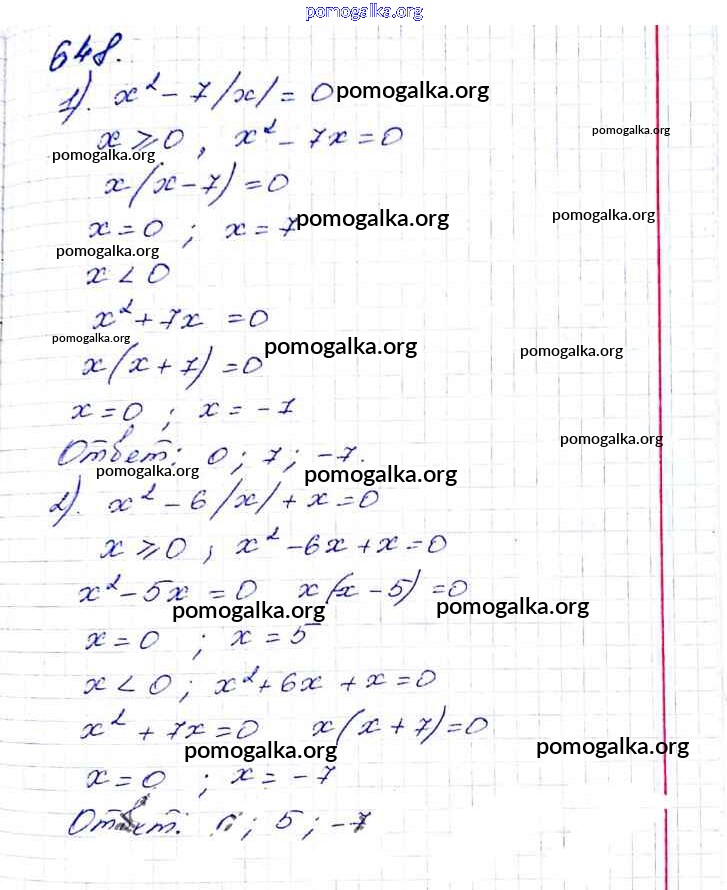 pomogalka.org
648.
1). x² - 7/x/ = 0 pomogalka.org
pomogalka.org
x ⩾ 0, x² - 7x = 0
pomogalka.org
x(x - 7) = 0
pomogalka.org
x = 0 ; x = 7 pomogalka.org
pomogalka.org
x < 0
x² + 7x = 0
pomogalka.org
pomogalka.org
x(x + 7) = 0
pomogalka.org
x = 0 ; x = -7
pomogalka.org
Ответ: 0 ; 7 ; -7.
pomogalka.org
pomogalka.org
2). x² - 6/x/ + x = 0
x ⩾ 0, x² - 6x + x = 0
x² - 5x = 0 x(x - 5) = 0
pomogalka.org
pomogalka.org
x = 0 ; x = 5
x < 0 ; x² + 6x + x = 0
x² + 7x = 0 x(x + 7) = 0
pomogalka.org
pomogalka.org
x = 0 ; x = -7
Ответ: 0 ; 5 ; -7